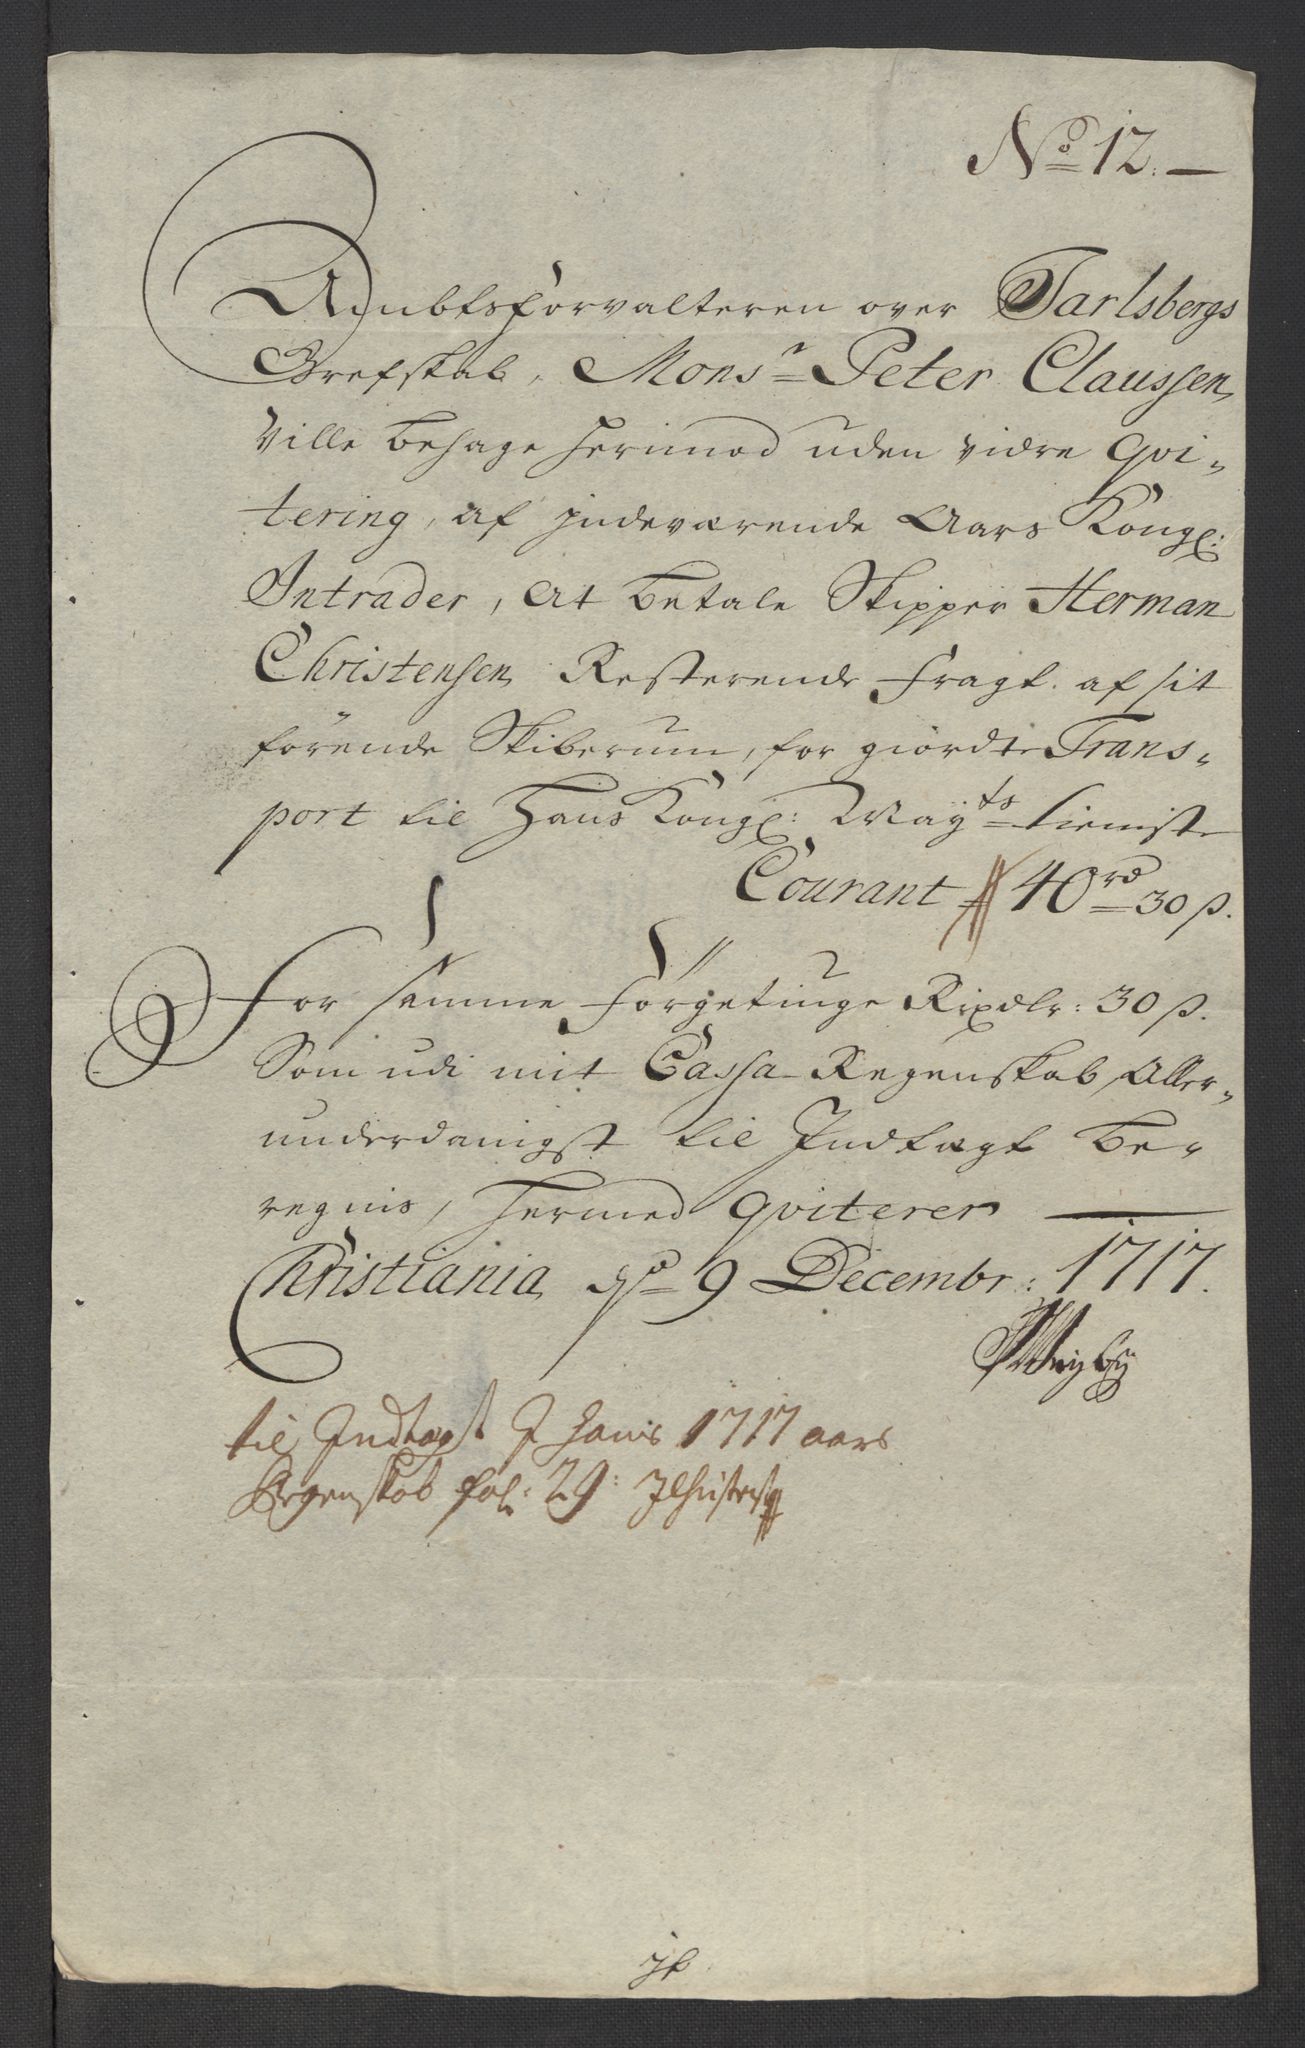 No 12. —
Ambtsforvalteren over Jarlsbergs
Grefskab, Monsr Peter Claussen,
Ville behage herimod uden vidre Qvi-
tering, af jndeværende Aars Kongl:
Intrader, at betale Skipper Herman
Christensen, Resterende Fragt. af sit
förende Skiberum, for giordte Trans-
port til Hans Kongl: Mayts tieniste
Courant # 40 rd 30 ß.
For samme Förgetiuge Rixdlr: 30 ß.
Som udi mit Cassa-Regenskab, Aller-
underdanigst til Indtægt be-
regnis, hermed Qviterer
Christiania, d 9 Decembr: 1717.
til Indtægt J hans 1717 aars
Regenskab fol: 29: